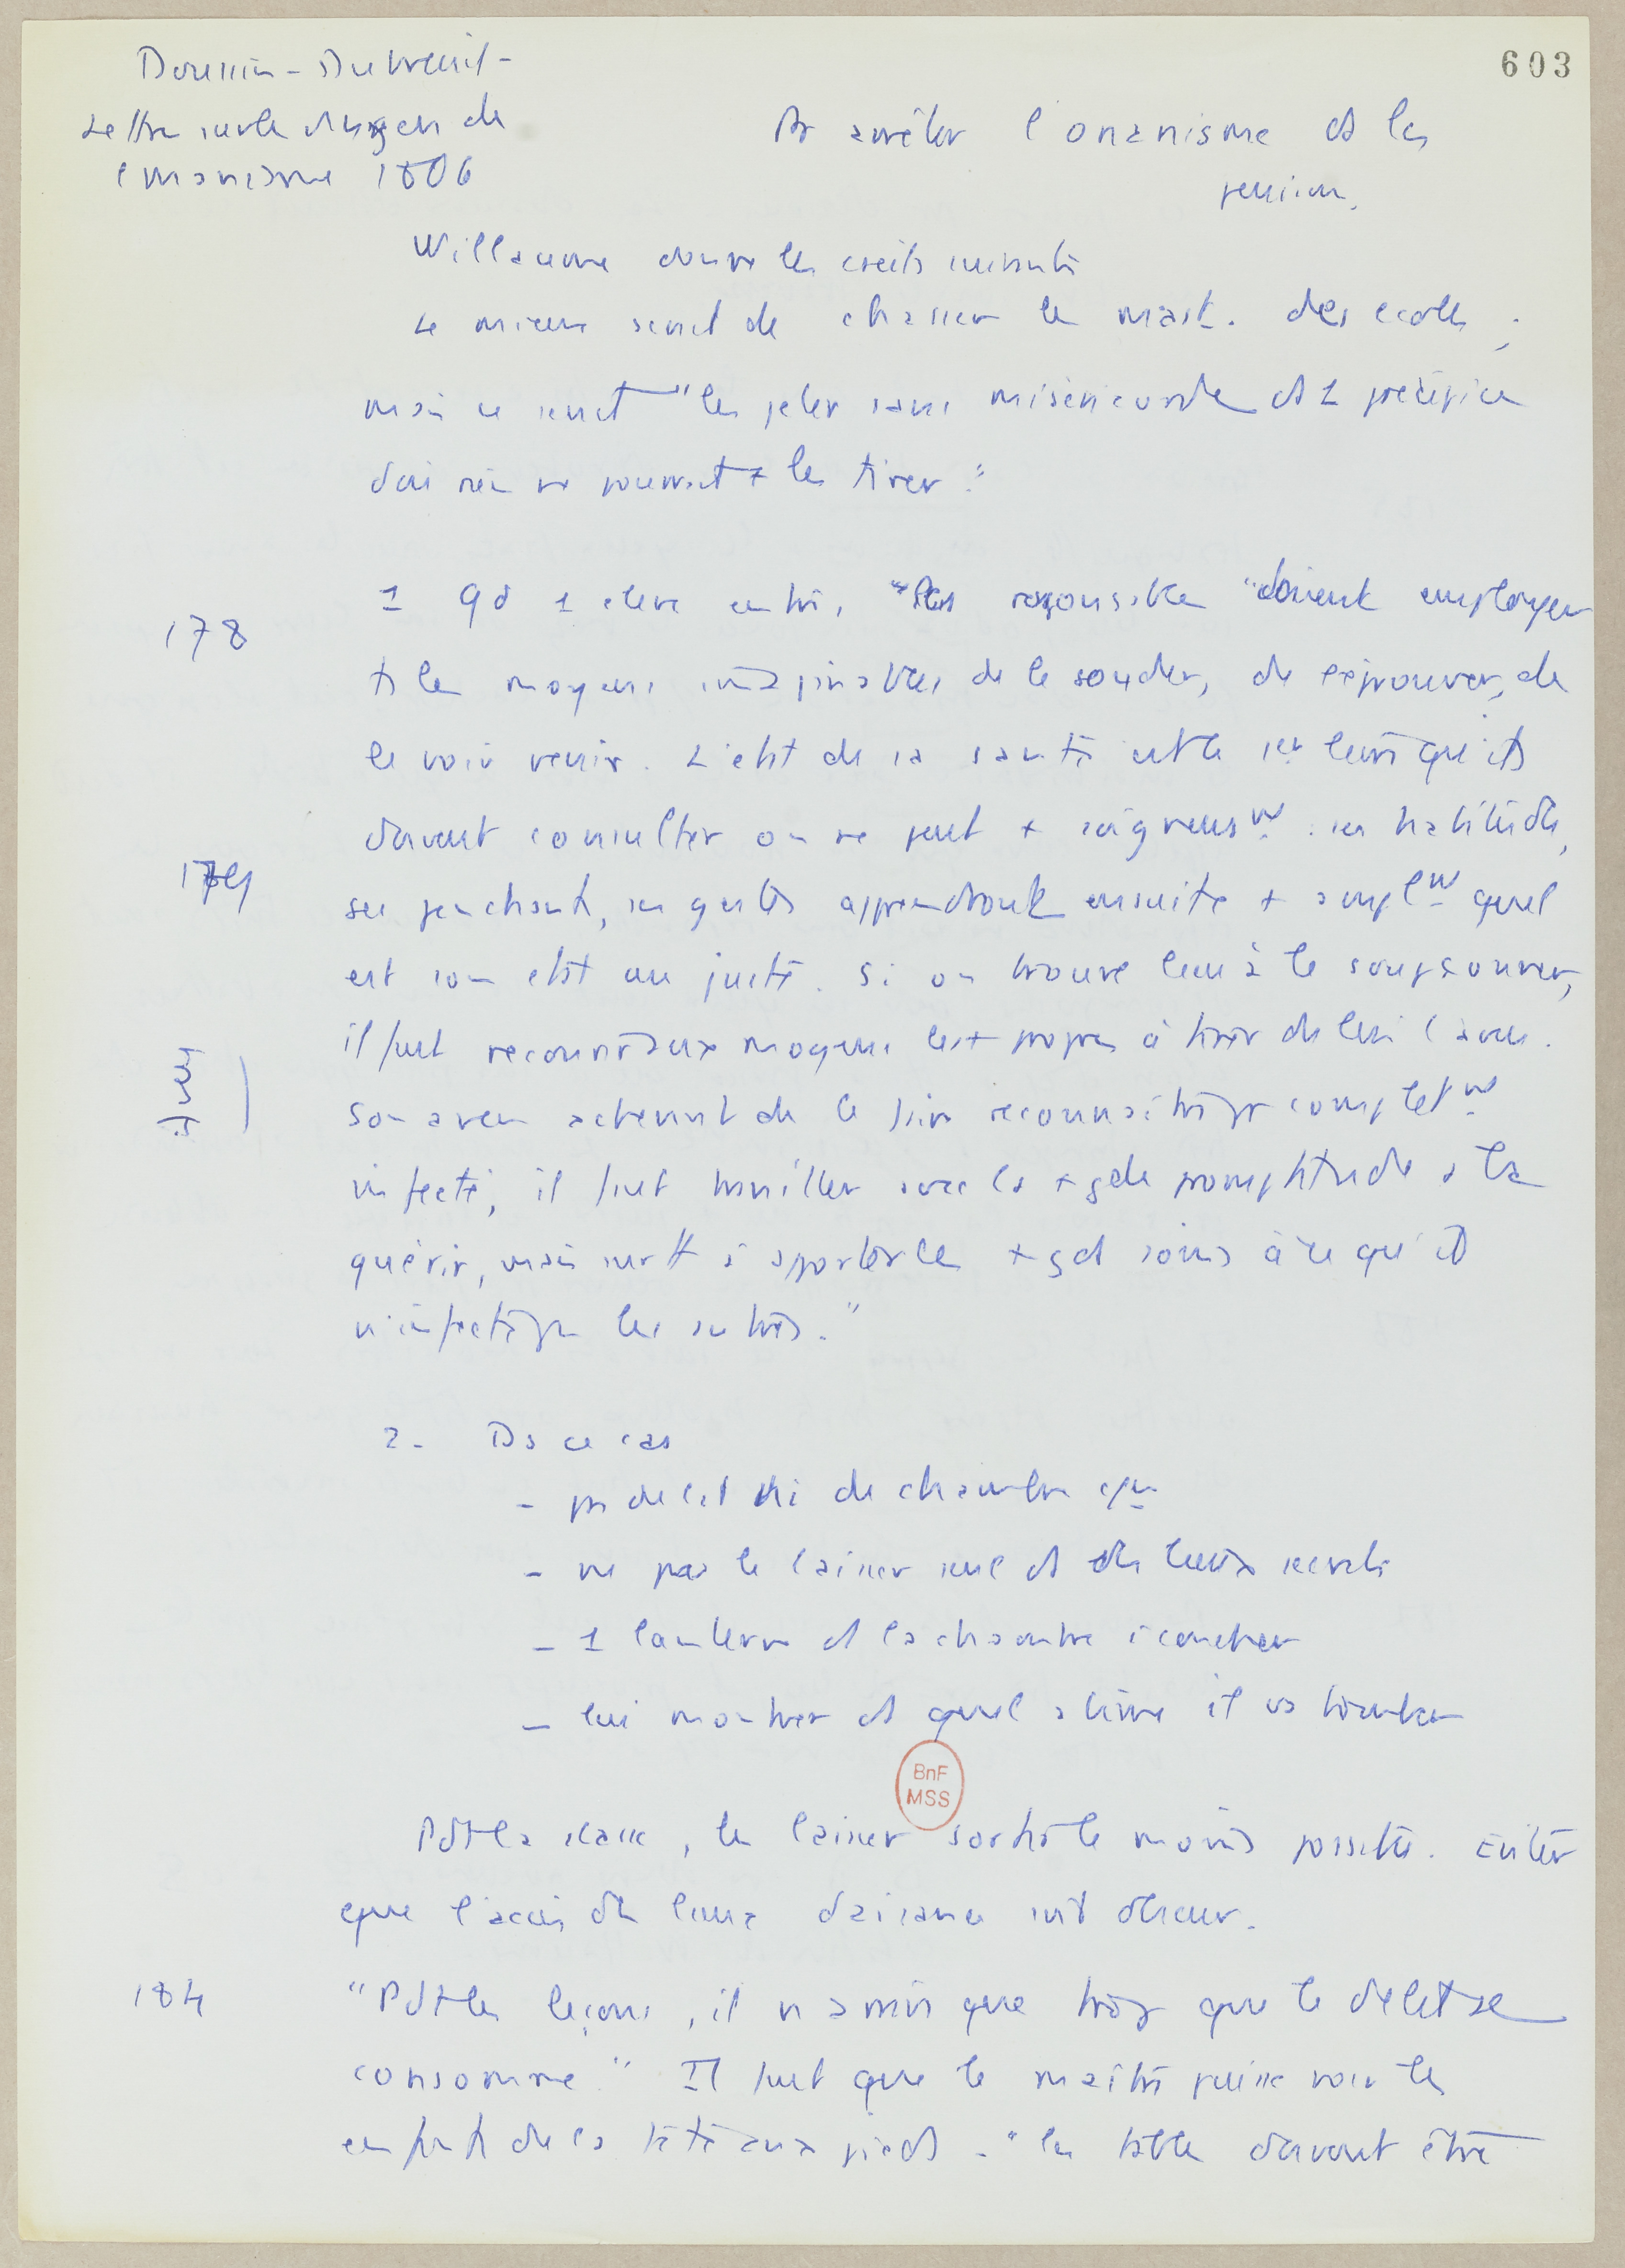 603
Doussin-Dubreuil -
Lettre sur les dangers de
l'onanisme 1806
Pr arrêter l'onanisme ds les
pension.
Willaume donne les conseils suivants
Le mieux serait de chasser les mast. des ecoles ;
mais ce serait "les jeter sans miséricorde ds 1 précipice
d'où rien ne pourrait + les tirer."
178
1 Qd 1 eleve entre, les responsables "doivent employer
ts les moyens imaginables de le sonder, de l'éprouver, de
le voir venir. L'etat de sa santé est le 1er livre qu'ils
doivent consulter on ne peut + soigneusmt ; ses habitudes,
179
ses penchants, ce qu'ils apprendront ensuite + amplmt quel
est son etat au juste. Si on trouve lieu à le soupçonner,
il faut recourir aux moyens les + propres à tirer de lui l'aveu.
aveu
Son aveu achevant de le faire reconnaitre pr completmt
infecté, il faut travailler avec la + gde promptitude à le
guérir, mais surtt à apporter les + gds soins à ce qu'il
n'infecte pas les autres."
2 - Ds ce cas
- pas de lit ni de chambre
- ne pas le laisser seul ds des lieux secrets
- 1 lanterne ds la chambre à coucher
- lui montrer ds quel abime il va tomber
BnF
MSS
Pdt la classe, les laisser sortir le moins possible. Eviter
que l'accès des lieux d'aisance soit obscur.
184
"Pdt les leçons, il n'arrive que trop que le délit se
consomme." Il faut que le maître puisse voir les
enfants de la tête aux pieds - "les tables doivent être